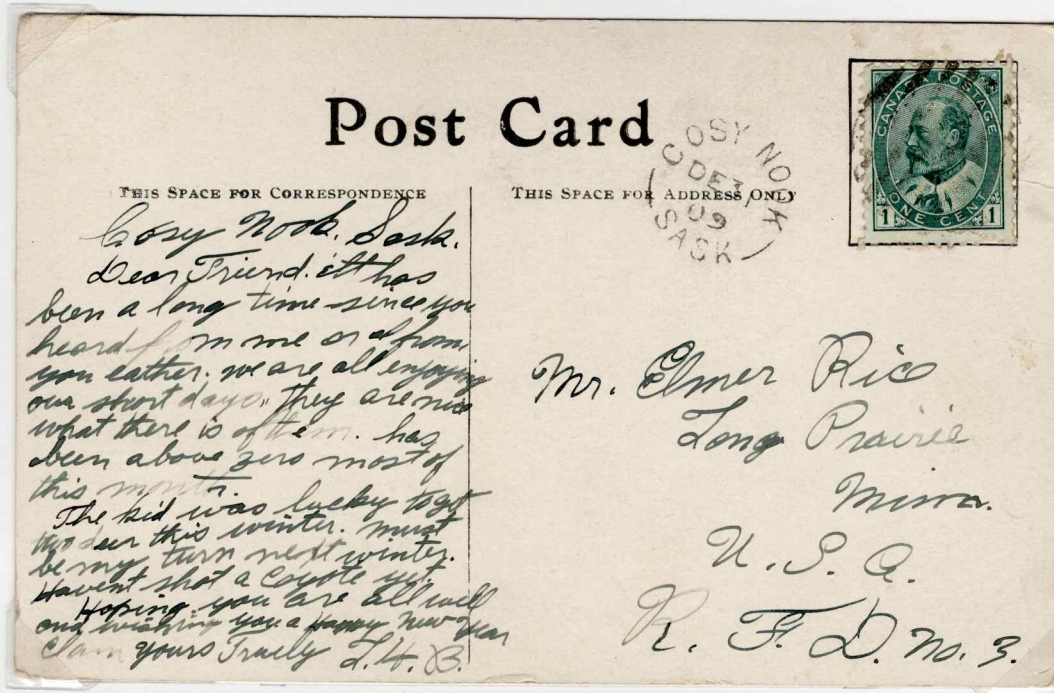 Post Card
THIS SPACE FOR CORRESPONDENCE
THIS SPACE FOR ADDRESS ONLY
COSY NOOK
DE 31
09
SASK
CANADA POSTAGE
1 ONE CENT 1
Cosy Nook. Sask.
Dear Friend. itt has
been a long time since you
heard from me or I from
you eather. we are all enjoying
our short days. they are nice
what there is of them. has
been above zero most of
this month.
The kid was lucky to get
two deer this winter. must
be my turn next winter.
Havent shot a Coyote yet.
Hoping you are all well
and wishing you a Happy New Year
I am yours Truely L. H. B.
Mr. Elmer Rice
Long Prairie
Minn.
U. S. A.
R. F. D. No. 3.